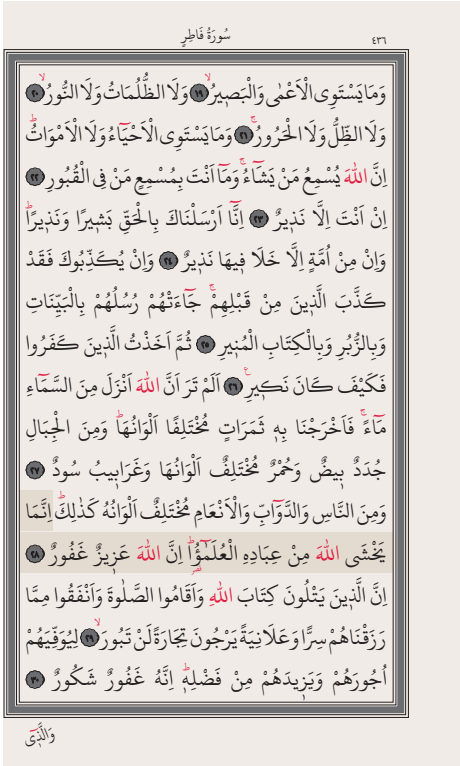 سُورَةُ فَاطِرٍ
٤٣٦
وَمَا يَسْتَوِى الْاَعْمٰى وَالْبَصٖيرُۙ ﴿١٩﴾ وَلَا الظُّلُمَاتُ وَلَا النُّورُۙ ﴿٢٠﴾
وَلَا الظِّلُّ وَلَا الْحَرُورُۚ ﴿٢١﴾ وَمَا يَسْتَوِى الْاَحْيَٓاءُ وَلَا الْاَمْوَاتُؕ
اِنَّ اللّٰهَ يُسْمِعُ مَنْ يَشَٓاءُۚ وَمَٓا اَنْتَ بِمُسْمِعٍ مَنْ فِى الْقُبُورِ ﴿٢٢﴾
اِنْ اَنْتَ اِلَّا نَذٖيرٌ ﴿٢٣﴾ اِنَّٓا اَرْسَلْنَاكَ بِالْحَقِّ بَشٖيرًا وَنَذٖيرًاؕ
وَاِنْ مِنْ اُمَّةٍ اِلَّا خَلَا فٖيهَا نَذٖيرٌ ﴿٢٤﴾ وَاِنْ يُكَذِّبُوكَ فَقَدْ
كَذَّبَ الَّذٖينَ مِنْ قَبْلِهِمْۚ جَٓاءَتْهُمْ رُسُلُهُمْ بِالْبَيِّنَاتِ
وَبِالزُّبُرِ وَبِالْكِتَابِ الْمُنٖيرِ ﴿٢٥﴾ ثُمَّ اَخَذْتُ الَّذٖينَ كَفَرُوا
فَكَيْفَ كَانَ نَكٖيرِ۟ ﴿٢٦﴾ اَلَمْ تَرَ اَنَّ اللّٰهَ اَنْزَلَ مِنَ السَّمَٓاءِ
مَٓاءًۚ فَاَخْرَجْنَا بِهٖ ثَمَرَاتٍ مُخْتَلِفًا اَلْوَانُهَاؕ وَمِنَ الْجِبَالِ
جُدَدٌ بٖيضٌ وَحُمْرٌ مُخْتَلِفٌ اَلْوَانُهَا وَغَرَابٖيبُ سُودٌ ﴿٢٧﴾
وَمِنَ النَّاسِ وَالدَّوَٓابِّ وَالْاَنْعَامِ مُخْتَلِفٌ اَلْوَانُهُ كَذٰلِكَؕ اِنَّمَا
يَخْشَى اللّٰهَ مِنْ عِبَادِهِ الْعُلَمٰٓؤُ۬اؕ اِنَّ اللّٰهَ عَزٖيزٌ غَفُورٌ ﴿٢٨﴾
اِنَّ الَّذٖينَ يَتْلُونَ كِتَابَ اللّٰهِ وَاَقَامُوا الصَّلٰوةَ وَاَنْفَقُوا مِمَّا
رَزَقْنَاهُمْ سِرًّا وَعَلَانِيَةً يَرْجُونَ تِجَارَةً لَنْ تَبُورَۙ ﴿٢٩﴾ لِيُوَفِّيَهُمْ
اُجُورَهُمْ وَيَزٖيدَهُمْ مِنْ فَضْلِهٖؕ اِنَّهُ غَفُورٌ شَكُورٌ ﴿٣٠﴾
وَالَّذٖٓى